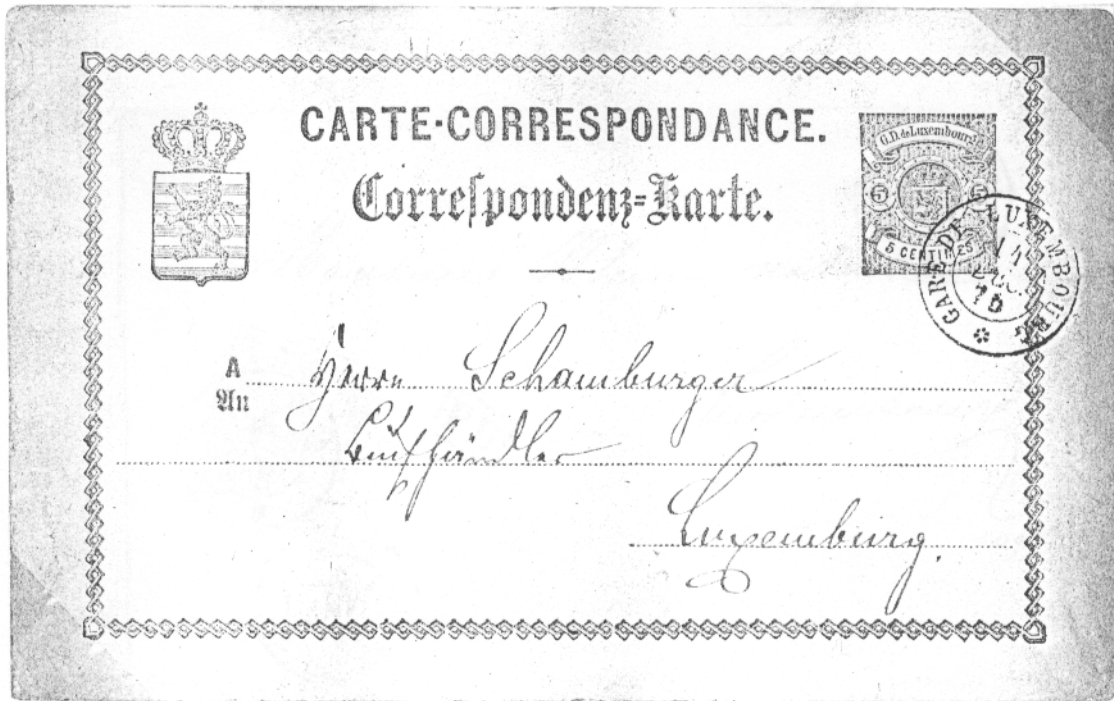 CARTE-CORRESPONDANCE.
Correspondenz-Karte.
G.D. de Luxembourg
5 5
5 CENTIMES
GARE DE LUXEMBOURG
A
An
Herrn Schamburger
Buchhändler
Luxemburg.